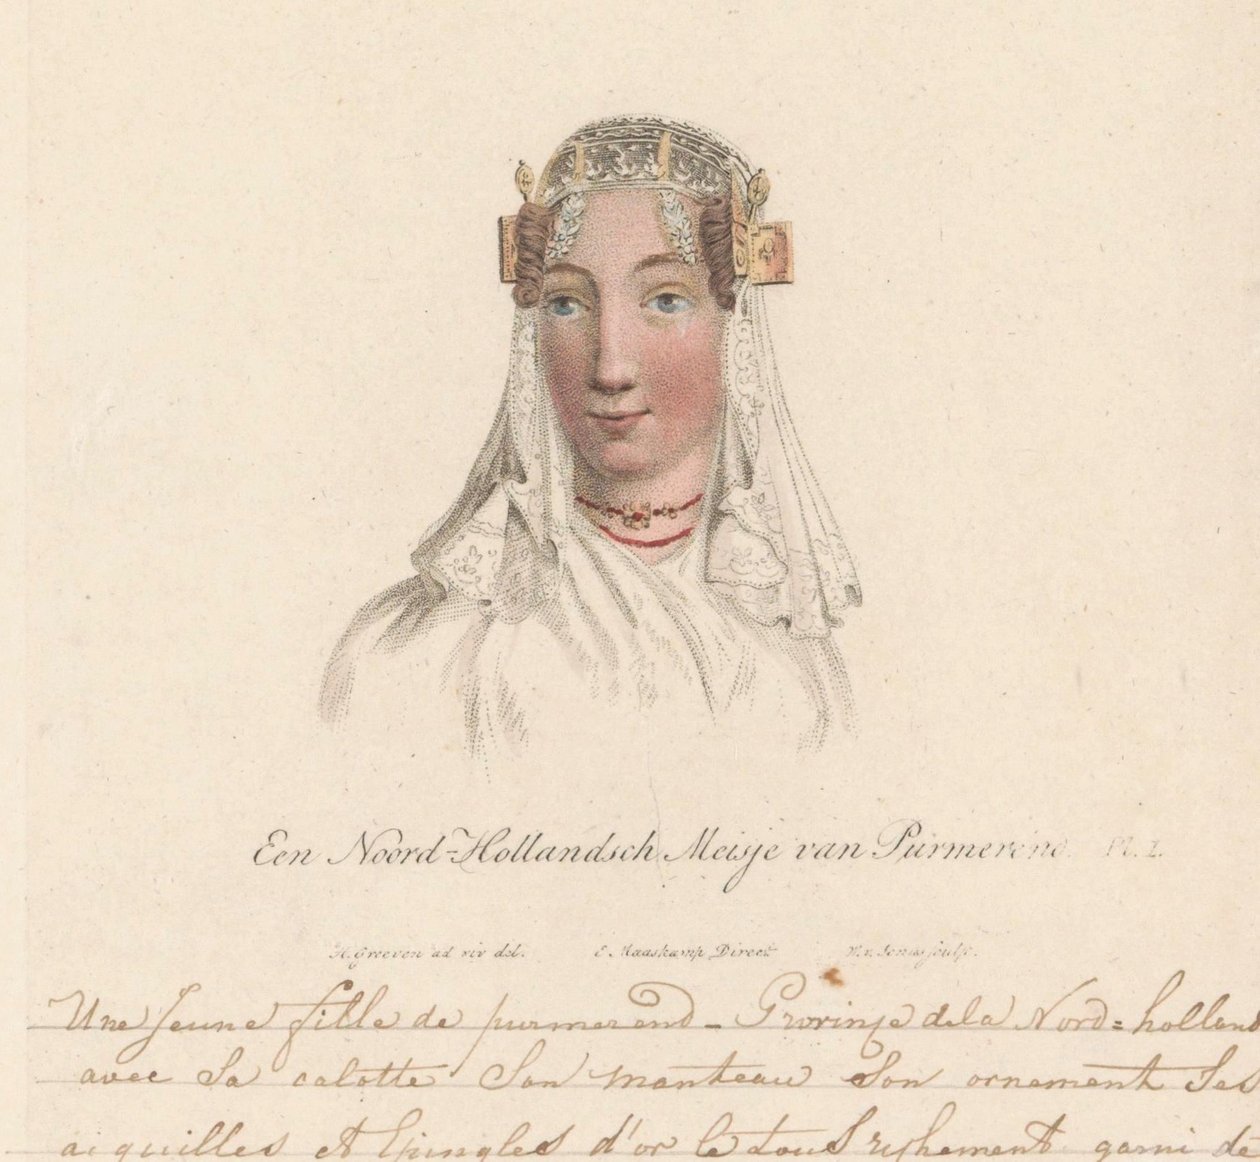 Een Noord-Hollandsch Meisje van Purmerend. Pl. 1.
H. Greeven ad viv del. E. Maaskamp Direct.
Une jeune fille de purmerend - Provinse dela Nord=holland
avec Sa calotte Son manteau Son ornement Ses
aiguilles et Epingles d'or le tout rischement garni de